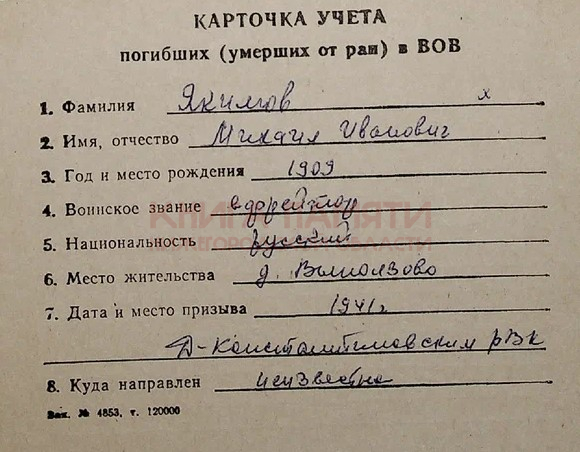 КАРТОЧКА УЧЕТА
погибших (умерших от ран) в ВОВ
1. Фамилия Якимов х
2. Имя, отчество Михаил Иванович
3. Год и место рождения 1909
КНИГА ПАМЯТИ
4. Воинское звание ефрейтор
НИЖЕГОРОДСКОЙ ОБЛАСТИ
5. Национальность русский
6. Место жительства д.
7. Дата и место призыва 1941г.
Д-Константиновским рВк
8. Куда направлен неизвестно
Зак. № 4853, т. 120000